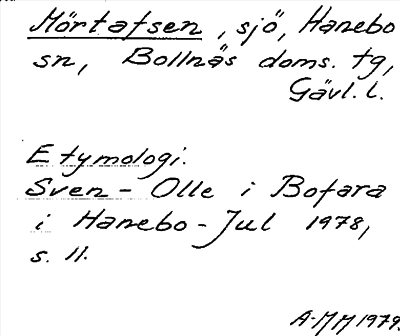 Mörtatsen, sjö, Hanebo
sn, Bollnäs doms. tg,
Gävl. l.
Etymologi.
Sven-Olle i Bofara
i Hanebo-Jul 1978,
s. 11.
A-MM 1979.